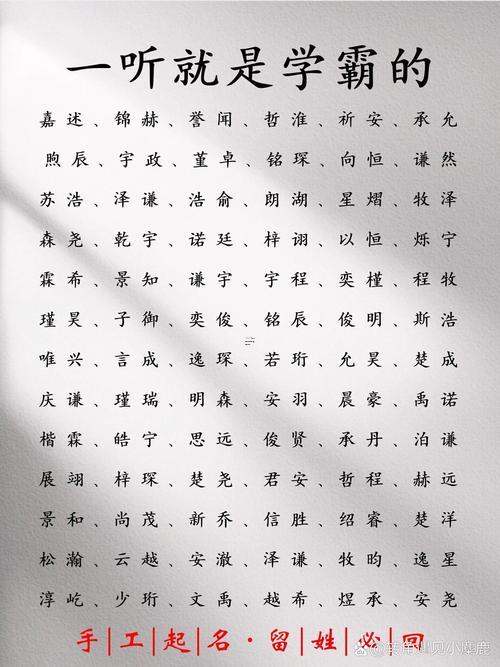 一听就是学霸的
嘉述、锦赫、誉闻、哲淮、祈安、承允
煦辰、宇政、董卓、铭琛、向恒、谦然
苏浩、泽谦、浩俞、朗湖、星熠、牧泽
森尧、乾宇、诺廷、梓诩、以恒、烁宁
霖希、景知、谦宇、宇程、奕槿、程牧
瑾昊、子御、奕俊、铭辰、俊明、斯浩
唯兴、言成、逸琛、若珩、允昊、楚成
庆谦、瑾瑞、明森、安羽、晨豪、禹诺
楷霖、皓宁、思远、俊贤、承丹、泊谦
展翊、梓琛、楚尧、君安、哲程、赫远
景和、尚茂、新乔、信胜、绍睿、楚洋
松瀚、云越、安澈、泽谦、牧昀、逸星
淳屹、少珩、文禹、越希、煜承、安尧
手|工|起|名·留|姓|必|回
转角遇见小麋鹿